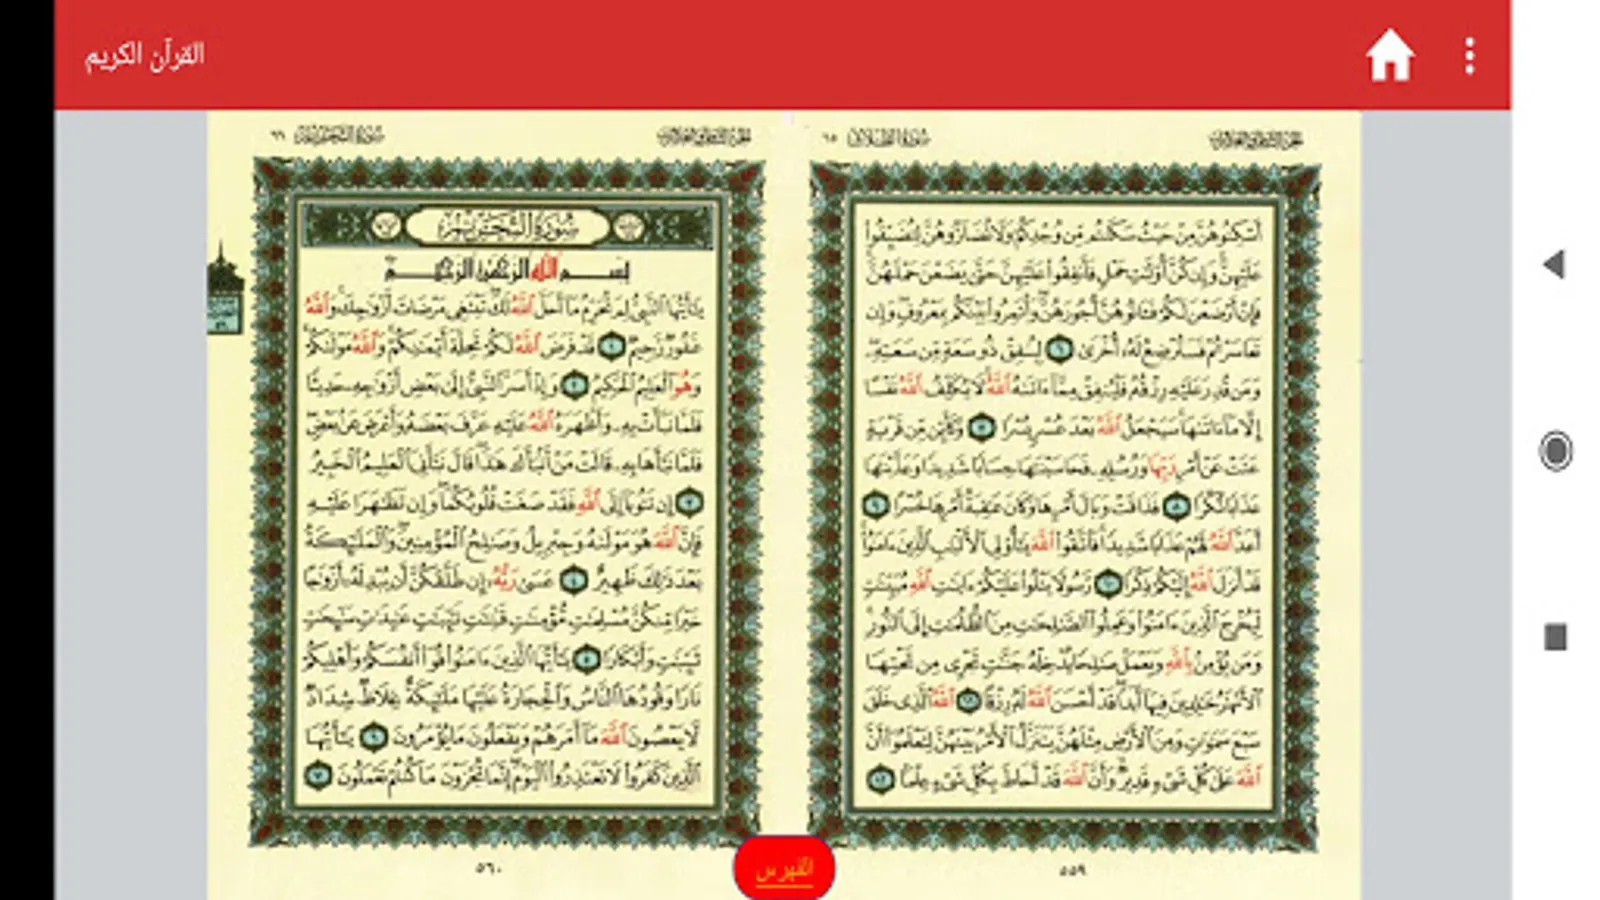 القرآن الكريم
الجزء الثامن والعشرون
سورة الطلاق ٦٥
أَسْكِنُوهُنَّ مِنْ حَيْثُ سَكَنتُم مِّن وُجْدِكُمْ وَلَا تُضَارُّوهُنَّ لِتُضَيِّقُوا۟
عَلَيْهِنَّ وَإِن كُنَّ أُو۟لَٰتِ حَمْلٍ فَأَنفِقُوا۟ عَلَيْهِنَّ حَتَّىٰ يَضَعْنَ حَمْلَهُنَّ
فَإِنْ أَرْضَعْنَ لَكُمْ فَـَٔاتُوهُنَّ أُجُورَهُنَّ وَأْتَمِرُوا۟ بَيْنَكُم بِمَعْرُوفٍ وَإِن
تَعَاسَرْتُمْ فَسَتُرْضِعُ لَهُۥٓ أُخْرَىٰ ٦ لِيُنفِقْ ذُو سَعَةٍ مِّن سَعَتِهِۦ
وَمَن قُدِرَ عَلَيْهِ رِزْقُهُۥ فَلْيُنفِقْ مِمَّآ ءَاتَىٰهُ ٱللَّهُ لَا يُكَلِّفُ ٱللَّهُ نَفْسًا
إِلَّا مَآ ءَاتَىٰهَا سَيَجْعَلُ ٱللَّهُ بَعْدَ عُسْرٍ يُسْرًا ٧ وَكَأَيِّن مِّن قَرْيَةٍ
عَتَتْ عَنْ أَمْرِ رَبِّهَا وَرُسُلِهِۦ فَحَاسَبْنَٰهَا حِسَابًا شَدِيدًا وَعَذَّبْنَٰهَا
عَذَابًا نُّكْرًا ٨ فَذَاقَتْ وَبَالَ أَمْرِهَا وَكَانَ عَٰقِبَةُ أَمْرِهَا خُسْرًا ٩
أَعَدَّ ٱللَّهُ لَهُمْ عَذَابًا شَدِيدًا فَٱتَّقُوا۟ ٱللَّهَ يَٰٓأُو۟لِى ٱلْأَلْبَٰبِ ٱلَّذِينَ ءَامَنُوا۟
قَدْ أَنزَلَ ٱللَّهُ إِلَيْكُمْ ذِكْرًا ١٠ رَّسُولًا يَتْلُوا۟ عَلَيْكُمْ ءَايَٰتِ ٱللَّهِ مُبَيِّنَٰتٍ
لِّيُخْرِجَ ٱلَّذِينَ ءَامَنُوا۟ وَعَمِلُوا۟ ٱلصَّٰلِحَٰتِ مِنَ ٱلظُّلُمَٰتِ إِلَى ٱلنُّورِ
وَمَن يُؤْمِنۢ بِٱللَّهِ وَيَعْمَلْ صَٰلِحًا يُدْخِلْهُ جَنَّٰتٍ تَجْرِى مِن تَحْتِهَا
ٱلْأَنْهَٰرُ خَٰلِدِينَ فِيهَآ أَبَدًا قَدْ أَحْسَنَ ٱللَّهُ لَهُۥ رِزْقًا ١١ ٱللَّهُ ٱلَّذِى خَلَقَ
سَبْعَ سَمَٰوَٰتٍ وَمِنَ ٱلْأَرْضِ مِثْلَهُنَّ يَتَنَزَّلُ ٱلْأَمْرُ بَيْنَهُنَّ لِتَعْلَمُوٓا۟ أَنَّ
ٱللَّهَ عَلَىٰ كُلِّ شَىْءٍ قَدِيرٌ وَأَنَّ ٱللَّهَ قَدْ أَحَاطَ بِكُلِّ شَىْءٍ عِلْمًۢا ١٢
٥٥٩
الجزء الثامن والعشرون
سورة التحريم ٦٦
سُورَةُ التَّحْرِيمِ
بِسْمِ ٱللَّهِ ٱلرَّحْمَٰنِ ٱلرَّحِيمِ
يَٰٓأَيُّهَا ٱلنَّبِىُّ لِمَ تُحَرِّمُ مَآ أَحَلَّ ٱللَّهُ لَكَ تَبْتَغِى مَرْضَاتَ أَزْوَٰجِكَ وَٱللَّهُ
غَفُورٌ رَّحِيمٌ ١ قَدْ فَرَضَ ٱللَّهُ لَكُمْ تَحِلَّةَ أَيْمَٰنِكُمْ وَٱللَّهُ مَوْلَىٰكُمْ
وَهُوَ ٱلْعَلِيمُ ٱلْحَكِيمُ ٢ وَإِذْ أَسَرَّ ٱلنَّبِىُّ إِلَىٰ بَعْضِ أَزْوَٰجِهِۦ حَدِيثًا
فَلَمَّا نَبَّأَتْ بِهِۦ وَأَظْهَرَهُ ٱللَّهُ عَلَيْهِ عَرَّفَ بَعْضَهُۥ وَأَعْرَضَ عَنۢ بَعْضٍ
فَلَمَّا نَبَّأَهَا بِهِۦ قَالَتْ مَنْ أَنۢبَأَكَ هَٰذَا قَالَ نَبَّأَنِىَ ٱلْعَلِيمُ ٱلْخَبِيرُ
٣ إِن تَتُوبَآ إِلَى ٱللَّهِ فَقَدْ صَغَتْ قُلُوبُكُمَا وَإِن تَظَٰهَرَا عَلَيْهِ
فَإِنَّ ٱللَّهَ هُوَ مَوْلَىٰهُ وَجِبْرِيلُ وَصَٰلِحُ ٱلْمُؤْمِنِينَ وَٱلْمَلَٰٓئِكَةُ
بَعْدَ ذَٰلِكَ ظَهِيرٌ ٤ عَسَىٰ رَبُّهُۥٓ إِن طَلَّقَكُنَّ أَن يُبْدِلَهُۥٓ أَزْوَٰجًا
خَيْرًا مِّنكُنَّ مُسْلِمَٰتٍ مُّؤْمِنَٰتٍ قَٰنِتَٰتٍ تَٰٓئِبَٰتٍ عَٰبِدَٰتٍ سَٰٓئِحَٰتٍ
ثَيِّبَٰتٍ وَأَبْكَارًا ٥ يَٰٓأَيُّهَا ٱلَّذِينَ ءَامَنُوا۟ قُوٓا۟ أَنفُسَكُمْ وَأَهْلِيكُمْ
نَارًا وَقُودُهَا ٱلنَّاسُ وَٱلْحِجَارَةُ عَلَيْهَا مَلَٰٓئِكَةٌ غِلَاظٌ شِدَادٌ
لَّا يَعْصُونَ ٱللَّهَ مَآ أَمَرَهُمْ وَيَفْعَلُونَ مَا يُؤْمَرُونَ ٦ يَٰٓأَيُّهَا
ٱلَّذِينَ كَفَرُوا۟ لَا تَعْتَذِرُوا۟ ٱلْيَوْمَ إِنَّمَا تُجْزَوْنَ مَا كُنتُمْ تَعْمَلُونَ ٧
٥٦٠
الفهرس